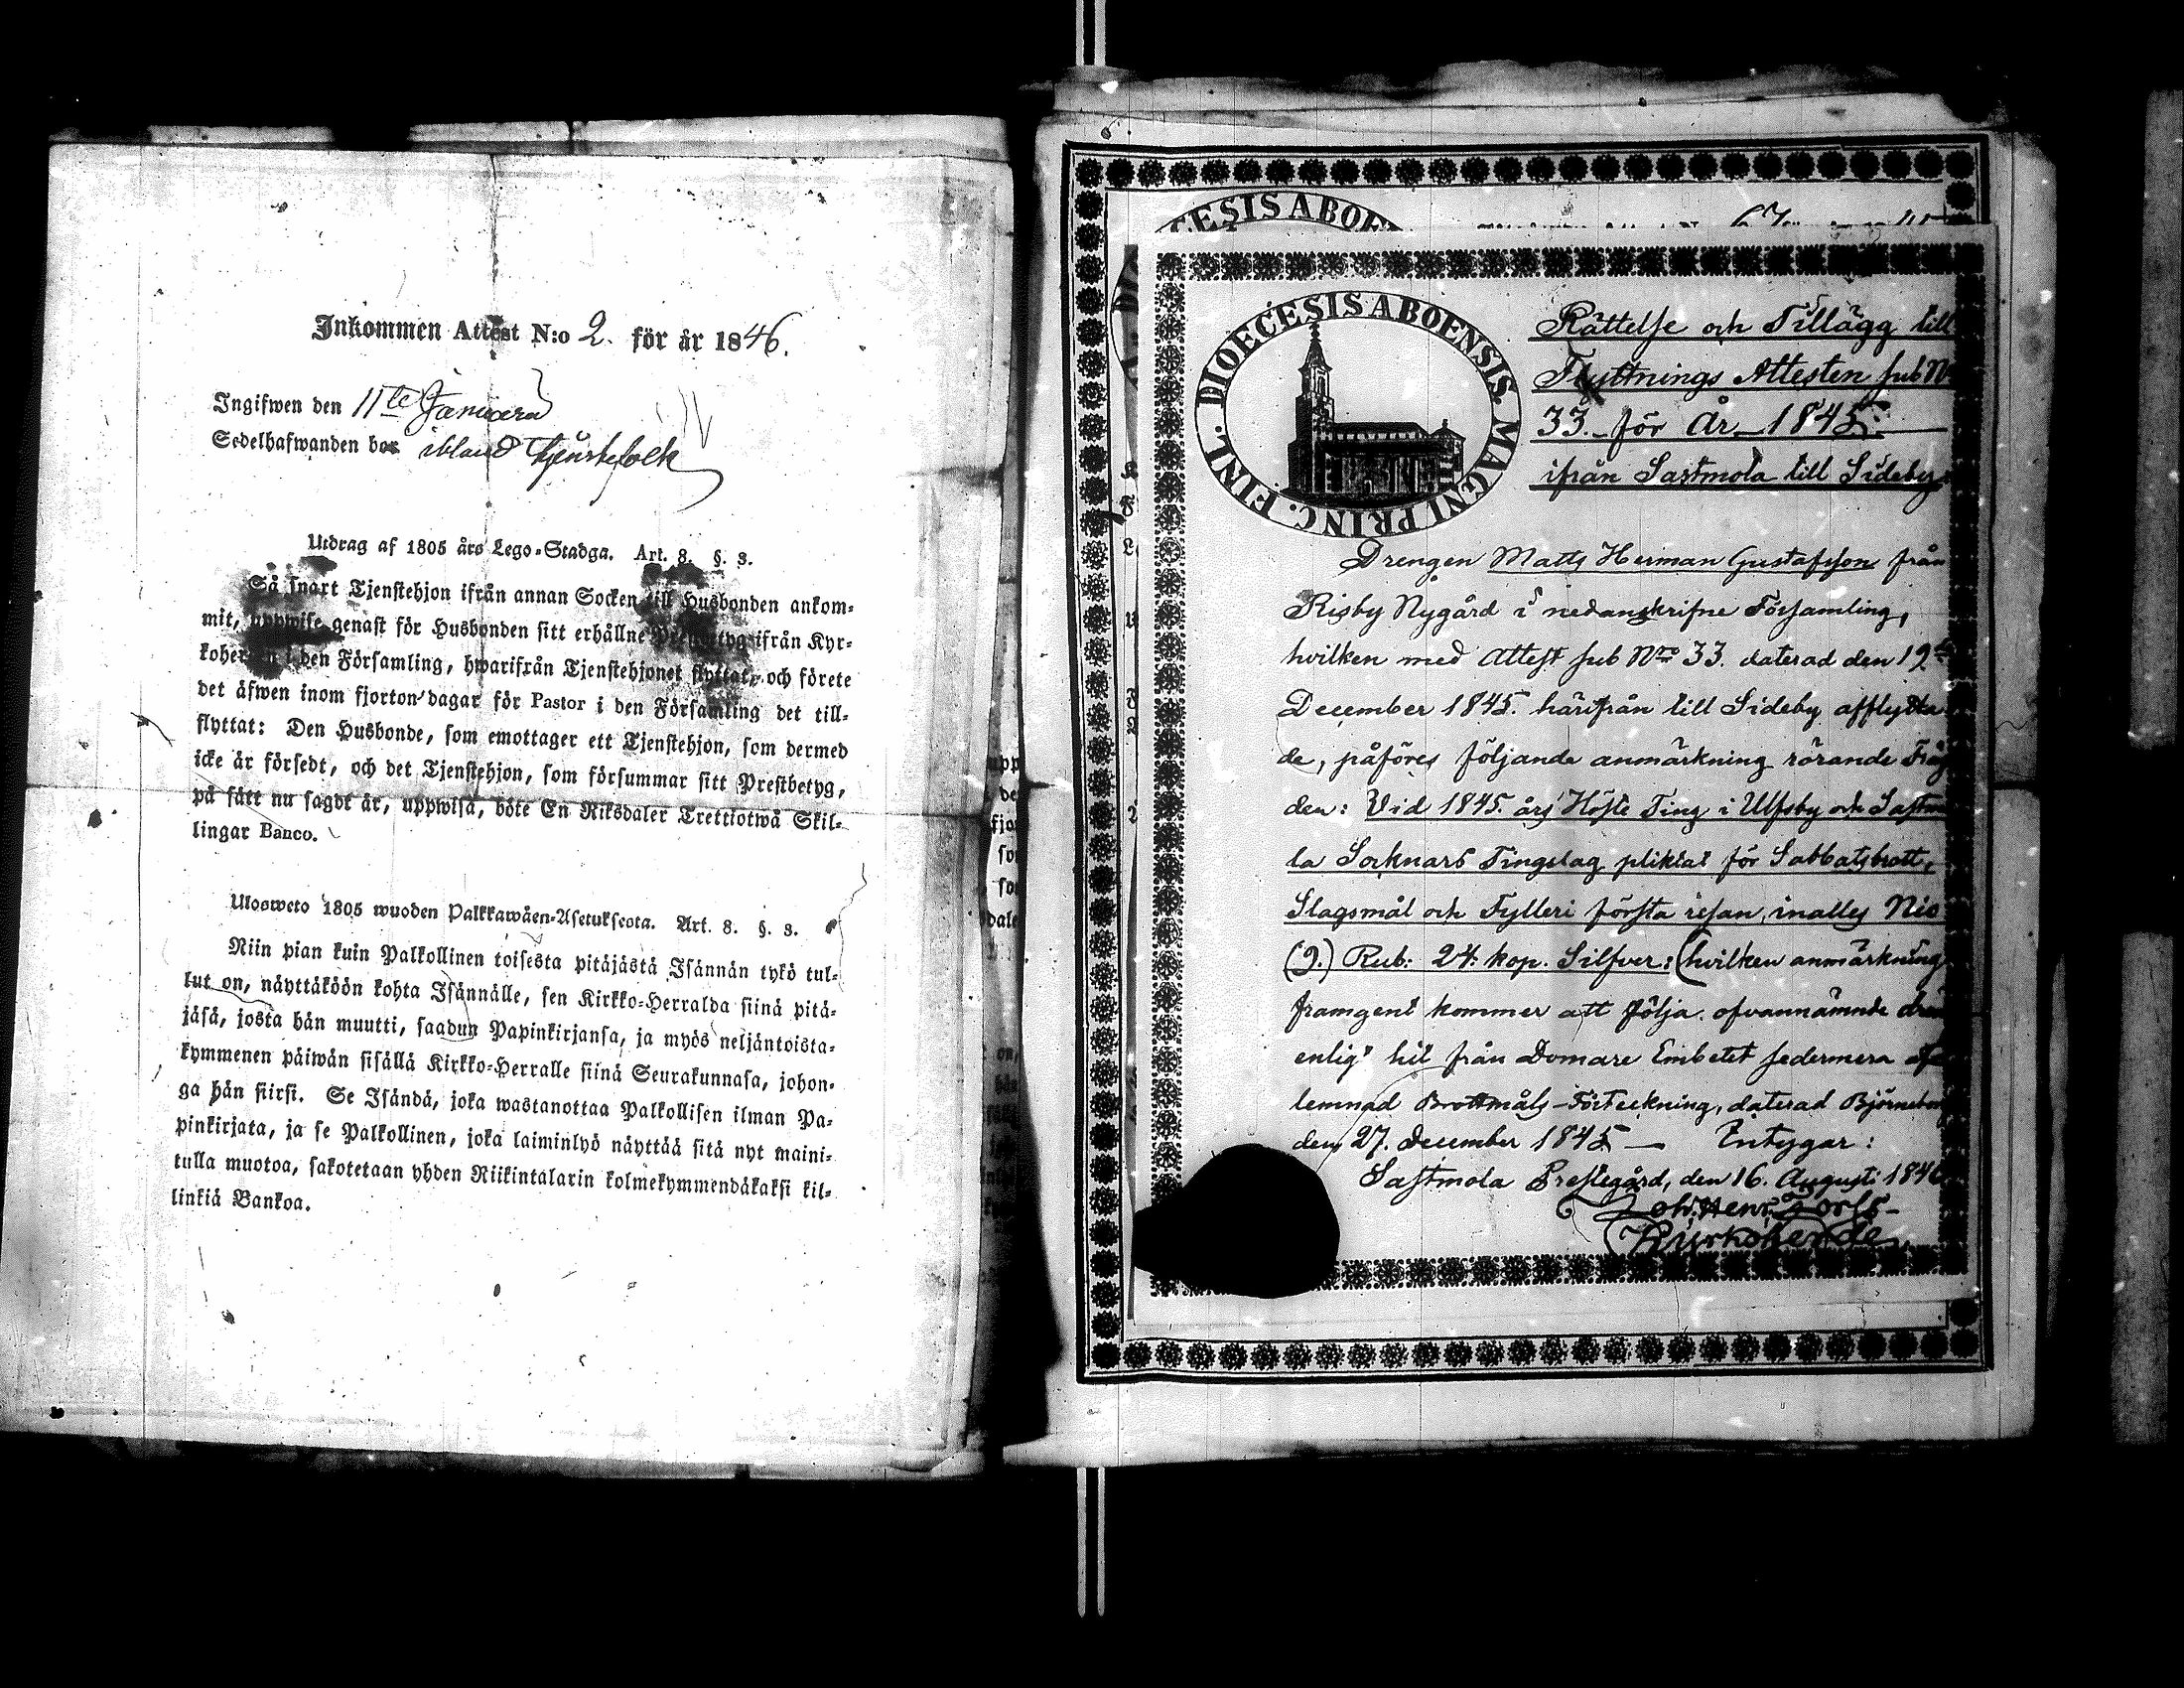 Inkommen Attest N:o 2. för år 1846.
Ingifwen den 11te Januarii
Sedelhafwanden bor ibland tjenstefolk
Utdrag af 1805 års Lego-Stadga. Art. 8. §. 3.
Så snart Tjenstehjon ifrån annan Socken till Husbonden ankom-
mit, uppwise genast för Husbonden sitt erhållne ifrån Kyr-
den Församling, hwarifrån Tjenstehjonet flyttat, och förete
det äfwen inom fjorton dagar för Pastor i den Församling det till-
flyttat: Den Husbonde, som emottager ett Tjenstehjon, som dermed
icke är försedt, och det Tjenstehjon, som försummar sitt Prestbetyg,
på sätt nu sagdt är, uppwisa, böte En Riksdaler Trettiotwå Skil-
lingar Banco.
Ulosweto 1805 wuoden Palkkawäen-Asetuksesta. Art. 8. §. 3.
Niin pian kuin Palkollinen toisesta pitäjästä Isännän tykö tul-
lut on, näyttäköön kohta Isännälle, sen Kirkko-Herralda siinä pitä-
jäsä, josta hän muutti, saadun Papinkirjansa, ja myös neljäntoista-
kymmenen päiwän sisällä Kirkko-Herralle siinä Seurakunnasa, johon-
ga hän siirsi. Se Isändä, joka wastanottaa Palkollisen ilman Pa-
pinkirjata, ja se Palkollinen, joka laiminlyö näyttää sitä nyt maini-
tulla muotoa, sakotetaan yhden Riikintalarin kolmekymmendäkaksi kil-
linkiä Bankoa.
CESIS ABOE 67
DIOECESIS ABOENSIS. MAGNI PRINC. FINL.
Rättelse och Tillägg till
Flyttnings Attesten sub N
33. för År 1845.
ifrån Sastmola till Sideby.
Drengen Matts Herman Gustafsson från
Risby Nygård i nedanskrifne Församling,
hvilken med Attest sub Nro 33. daterad den 19de
December 1845. härifrån till Sideby afflytta
de, påföres följande anmärkning rörande Fräg
den: Vid 1845. års Höste Ting i Ulfsby och Sastmo
la Socknars Tingslag pliktat för Sabbatsbrott,
Slagsmål och Fylleri första resan, inalles Nio
(9.) Rub: 24. kop. Silfver: (hvilken anmärkning
framgent kommer att följa ofvannämnde dren
enligt hit från Domare Embetet sedermera af
lemnad Brottmåls-Förteckning, daterad Björneborg
den 27. December 1845. — Intygar:
Sastmola Prestegård, den 16. Augusti 1846
Joh. Henr. Forss
Kyrkoherde.